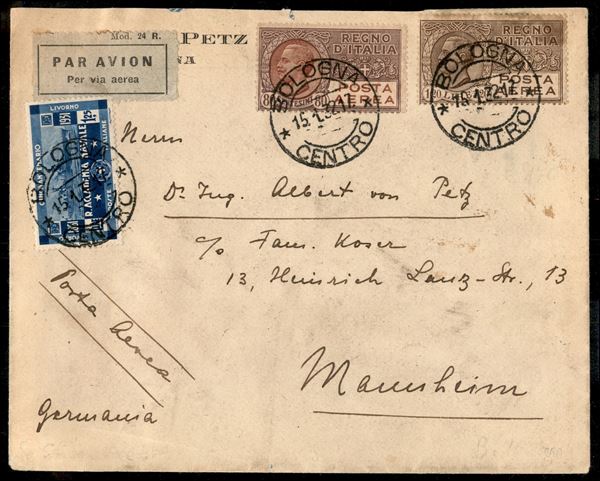 Mod. 24 R.
PAR AVION
Per via aerea
PETZ
NA
REGNO
D'ITALIA
POSTA
AEREA
80 CENTESIMI 80
REGNO
D'ITALIA
POSTA
AEREA
1,20
BOLOGNA
15.1.32.17
CENTRO
BOLOGNA
15.1.32.17
CENTRO
LIVORNO
1931
R. ACCADEMIA NAVALE
1,25
BOLOGNA
15.1.
CENTRO
Herrn
Dr. Ing. Albert von Petz
c/o Fam. Koser
13, Heinrich Lanz-Str., 13
Mannheim
Posta Aerea
Germania